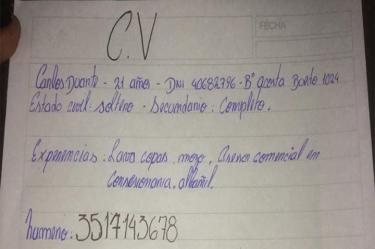 FECHA
C.V
Carlos Duarte - 21 años - DNI 40682796 - Bº acosta Borto 1024
Estado civil: soltero - Secundario: Completo.
Experiencias: Lava copas, mozo, Asesor comencial en
Consecionaria, albañil.
Numero: 3517143678